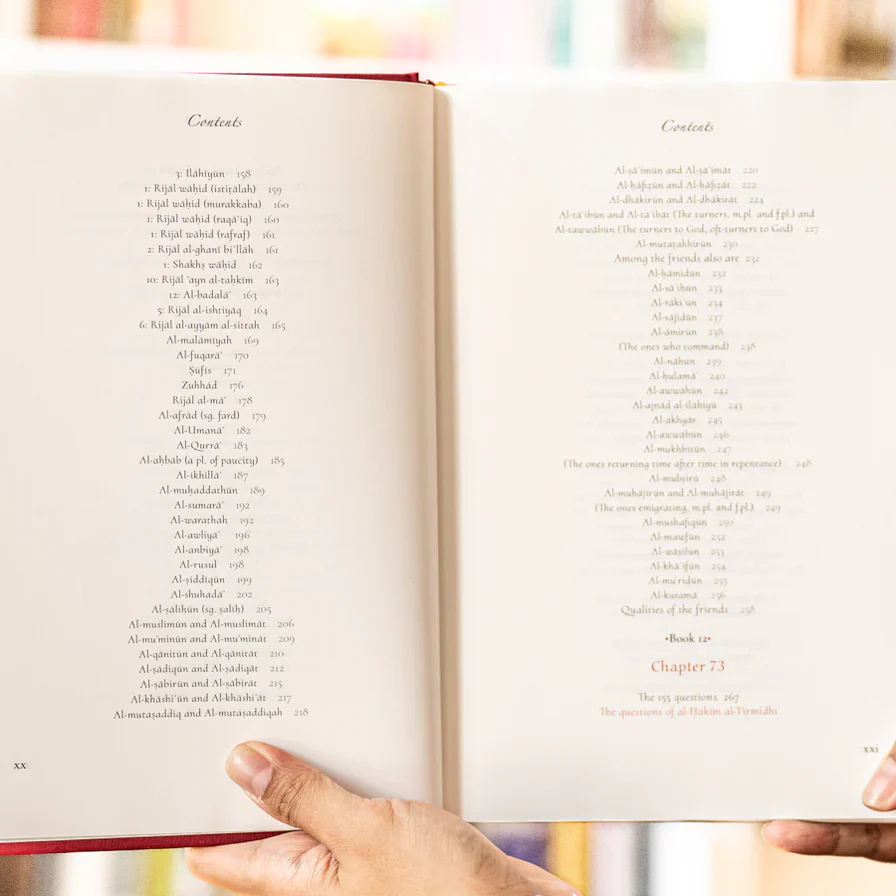 Contents
3: Ilāhīyūn 158
1: Rijāl wāḥid (istiṭālah) 159
1: Rijāl wāḥid (murakkaba) 160
1: Rijāl wāḥid (raqā'iq) 160
1: Rijāl wāḥid (rafraf) 161
2: Rijāl al-ghanī bi'llāh 161
1: Shakhṣ wāḥid 162
10: Rijāl 'ayn al-taḥkīm 163
12: Al-badalā' 163
5: Rijāl al-ishtiyāq 164
6: Rijāl al-ayyām al-sittah 165
Al-malāmīyah 169
Al-fuqarā' 170
Ṣūfīs 171
Zuhhād 176
Rijāl al-mā' 178
Al-afrād (sg. fard) 179
Al-Umanā' 182
Al-Qurrā' 183
Al-aḥbāb (a pl. of paucity) 185
Al-ikhillā' 187
Al-muḥaddathūn 189
Al-sumarā' 192
Al-warathah 192
Al-awliyā' 196
Al-anbiyā' 198
Al-rusul 198
Al-ṣiddīqūn 199
Al-shuhadā' 202
Al-ṣāliḥūn (sg. ṣaliḥ) 205
Al-muslimūn and Al-muslimāt 206
Al-mu'minūn and Al-mu'mināt 209
Al-qānitūn and Al-qānitāt 210
Al-ṣādiqūn and Al-ṣādiqāt 212
Al-ṣābirūn and Al-ṣābirāt 215
Al-khāshi'ūn and Al-khāshi'āt 217
Al-mutaṣaddiq and Al-mutaṣaddiqah 218
xx
Contents
Al-ṣā'imūn and Al-ṣā'imāt 220
Al-ḥāfiẓūn and Al-ḥāfiẓāt 222
Al-dhākirūn and Al-dhākirāt 224
Al-tā'ibūn and Al-tā'ibāt (The turners, m.pl. and f.pl.) and
Al-tawwābūn (The turners to God, oft-turners to God) 227
Al-mutaṭahhirūn 230
Among the friends also are 232
Al-ḥāmidūn 232
Al-sā'iḥūn 233
Al-rāki'ūn 234
Al-sājidūn 237
Al-āmirūn 238
(The ones who command) 238
Al-nāhūn 239
Al-ḥulamā' 240
Al-awwāhūn 242
Al-ajnād al-ilāhīyū 243
Al-akhyār 245
Al-awwābūn 246
Al-mukhbitūn 247
(The ones returning time after time in repentance) 248
Al-mubṣirū 248
Al-muhājirūn and Al-muhājirāt 249
(The ones emigrating, m.pl. and f.pl.) 249
Al-mushafiqūn 250
Al-mawfūn 252
Al-wāṣilūn 253
Al-khā'ifūn 254
Al-mu'riḍūn 255
Al-kuramā 256
Qualities of the friends 258
•Book 12•
Chapter 73
The 155 questions 267
The questions of al-Ḥakīm al-Tirmidhī
xxi